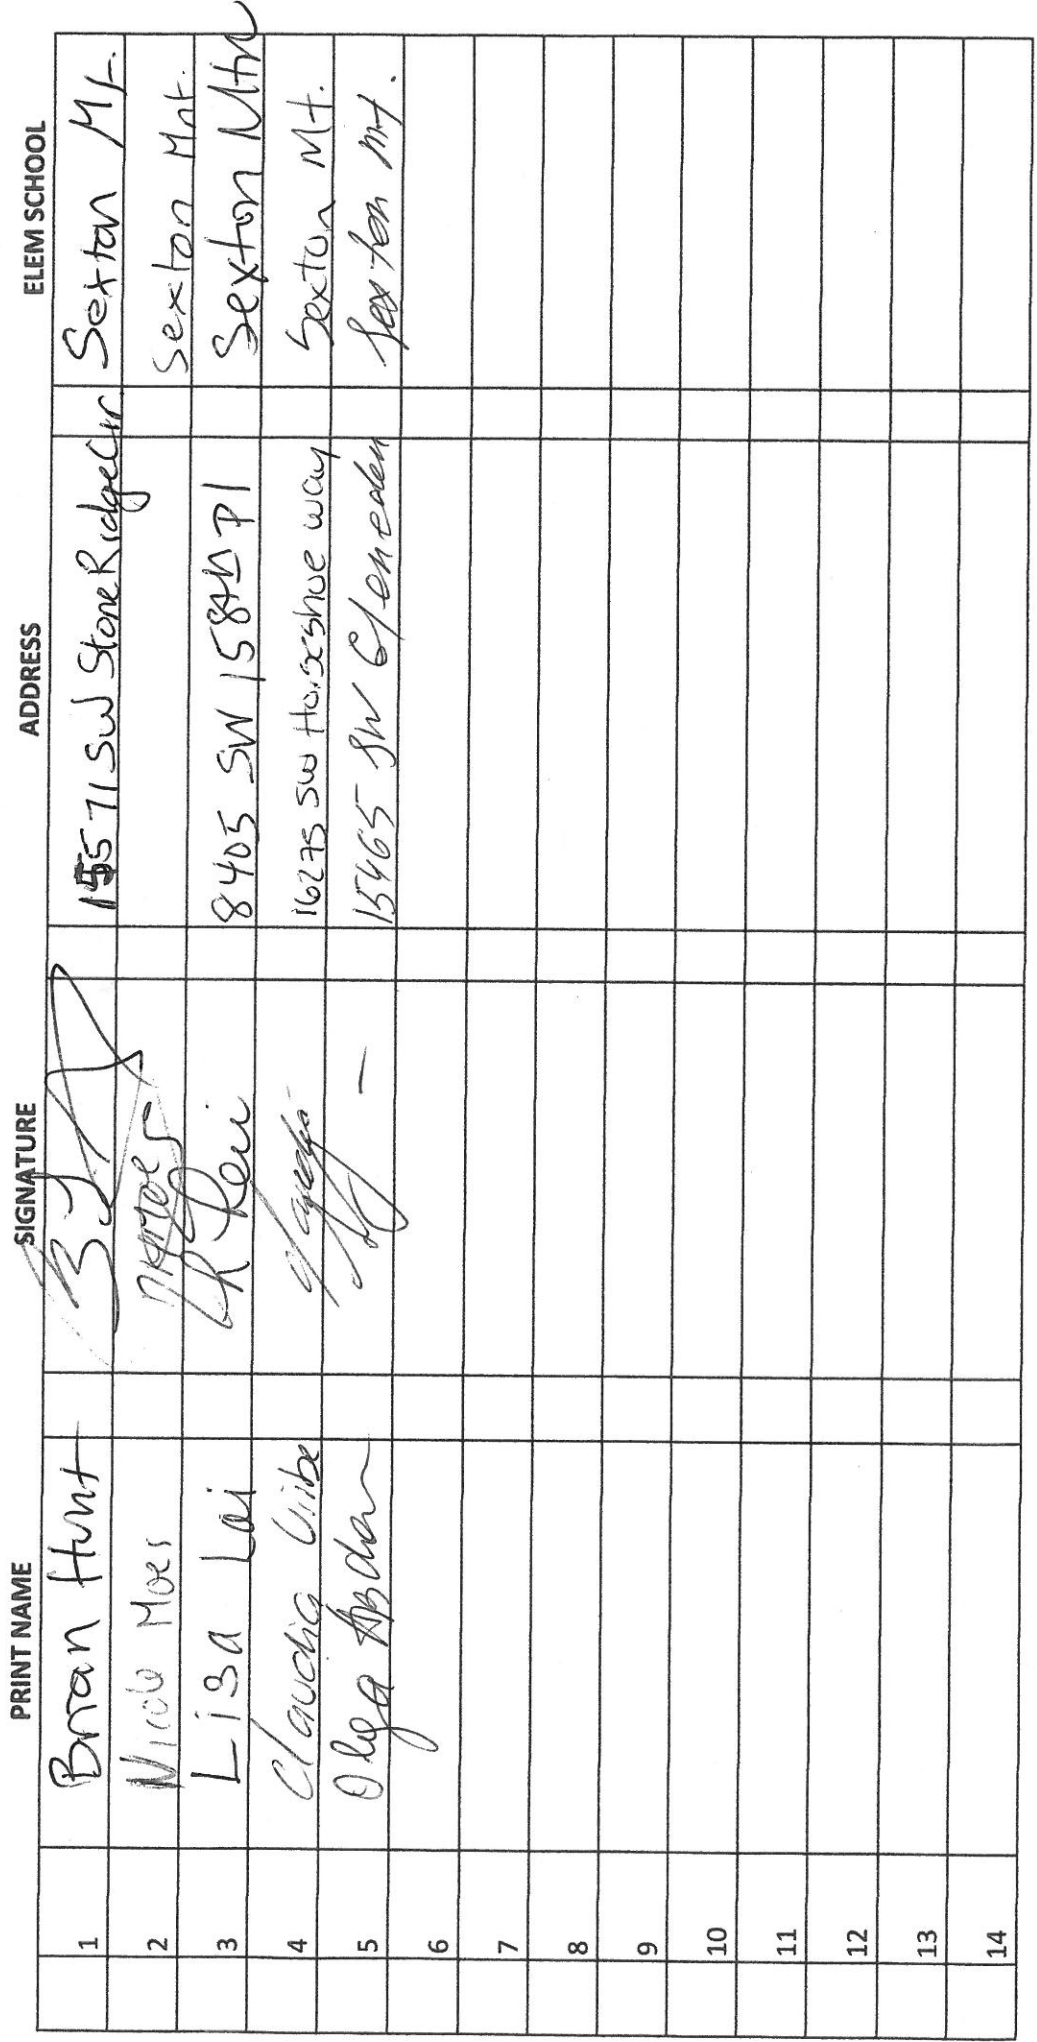 PRINT NAME SIGNATURE ADDRESS ELEM SCHOOL
1 Brian Hunt 15571 SW Stone Ridge Cir Sexton Mt.
2 Nicole Moes Sexton Mnt.
3 Lisa Lai 8405 SW 158th Pl Sexton Mtn
4 Claudia Uribe 16275 SW Horseshoe way Sexton Mt.
5 Olga 15465 SW Gleneden Sexton Mt.
6
7
8
9
10
11
12
13
14